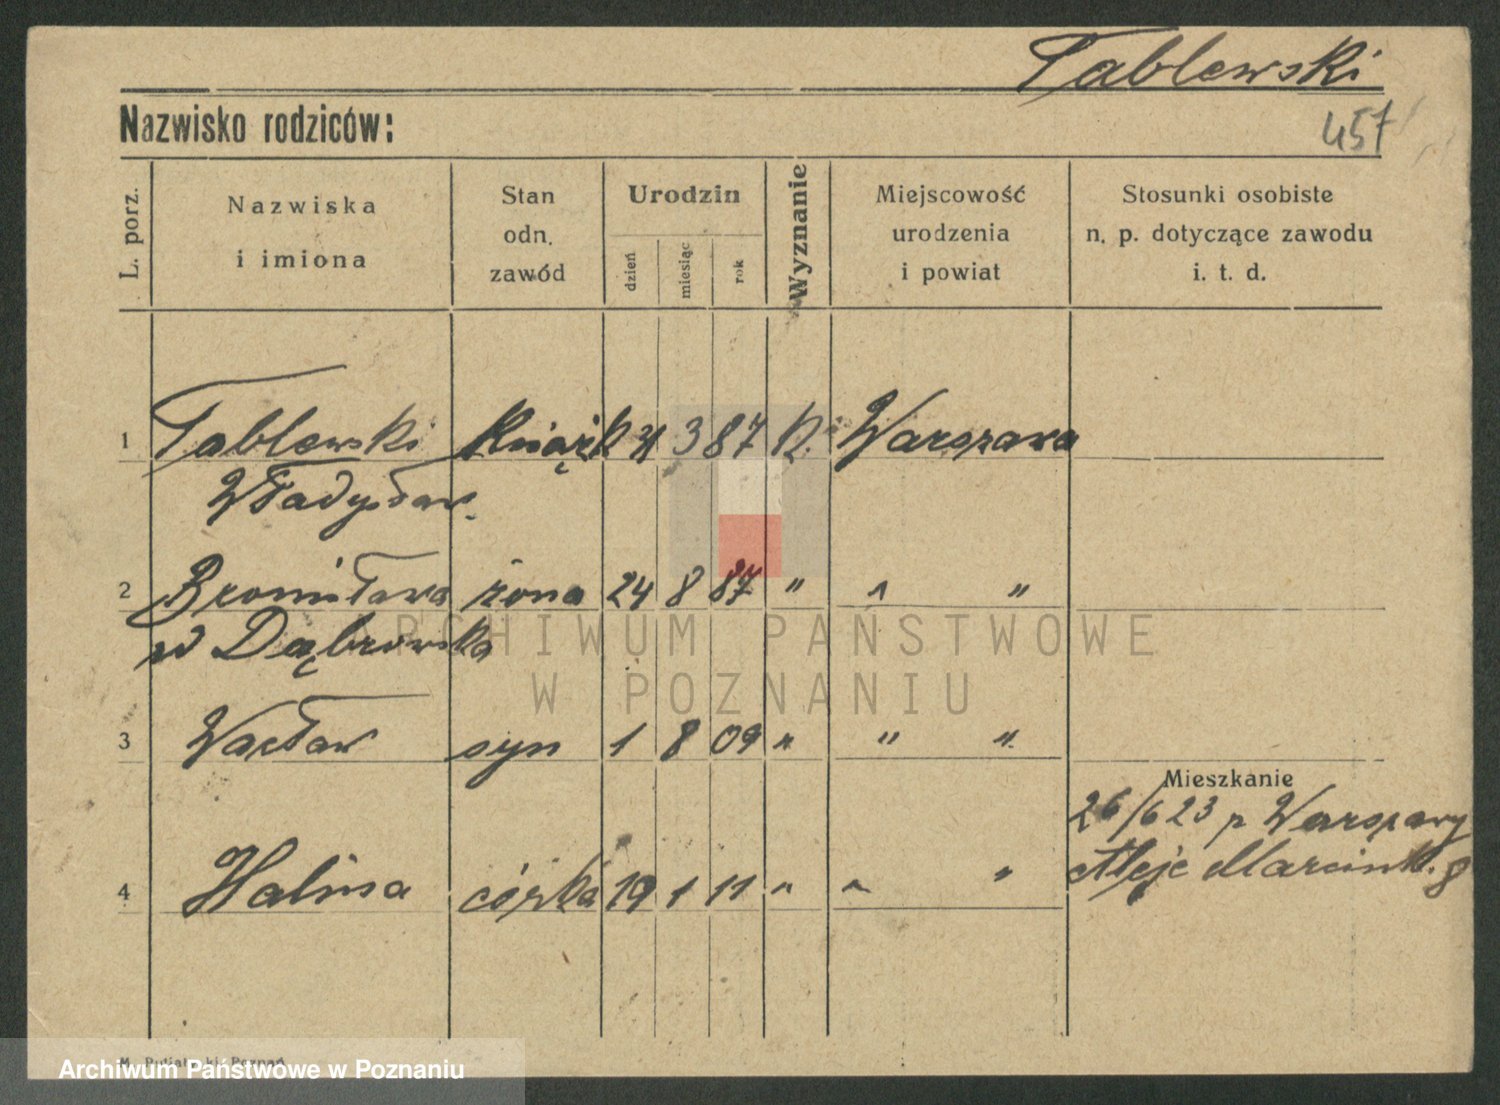 Tablewski
Nazwisko rodziców:
457
L. porz.
Nazwiska
i imiona
Stan
odn.
zawód
Urodzin
dzień
miesiąc
rok
Wyznanie
Miejscowość
urodzenia
i powiat
Stosunki osobiste
n. p. dotyczące zawodu
i. t. d.
1 Tablewski 31 3 87 K. Warszawa
Władysław.
2 Bronisława żona 24 8 87 " " "
Dąbrowska
3 Wacław syn 1 8 09 " " "
Mieszkanie
26/6 23 z Warszawy
Aleje Marcink. 8
4 Halina córka 19 1 11 " " "
ARCHIWUM PAŃSTWOWE
W POZNANIU
Archiwum Państwowe w Poznaniu